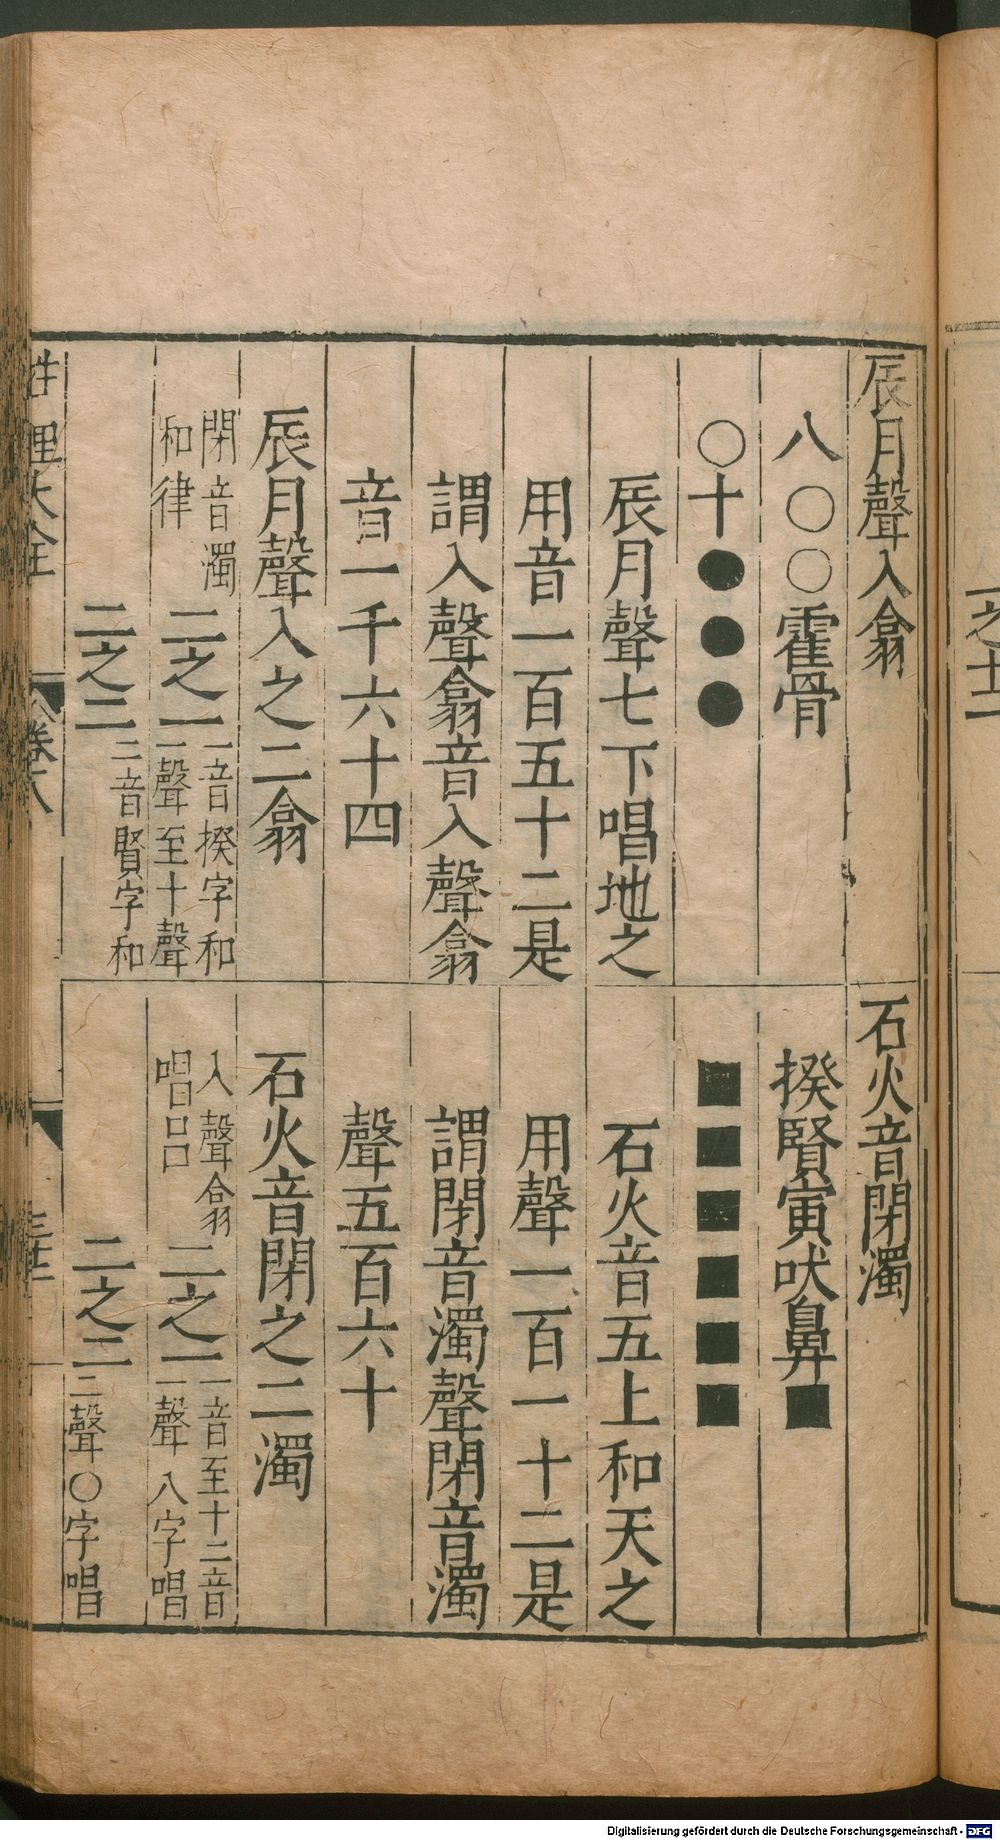 辰月聲入翕
八〇〇霍骨
〇十●●●
辰月聲七下唱地之
用音一百五十二是
謂入聲翕音入聲翕
音一千六十四
辰月聲入之二翕
閉音濁
和律
二之一
一音揆字和
一聲至十聲
二之二
二音賢字和
石火音閉濁
揆賢寅吠鼻■
■■■■■■
石火音五上和天之
用聲一百一十二是
謂閉音濁聲閉音濁
聲五百六十
石火音閉之二濁
入聲翕
唱呂
二之一
一音至十二音
一聲八字唱
二之二
二聲〇字唱
性理大全
卷八
Digitalisierung gefördert durch die Deutsche Forschungsgemeinschaft - DFG